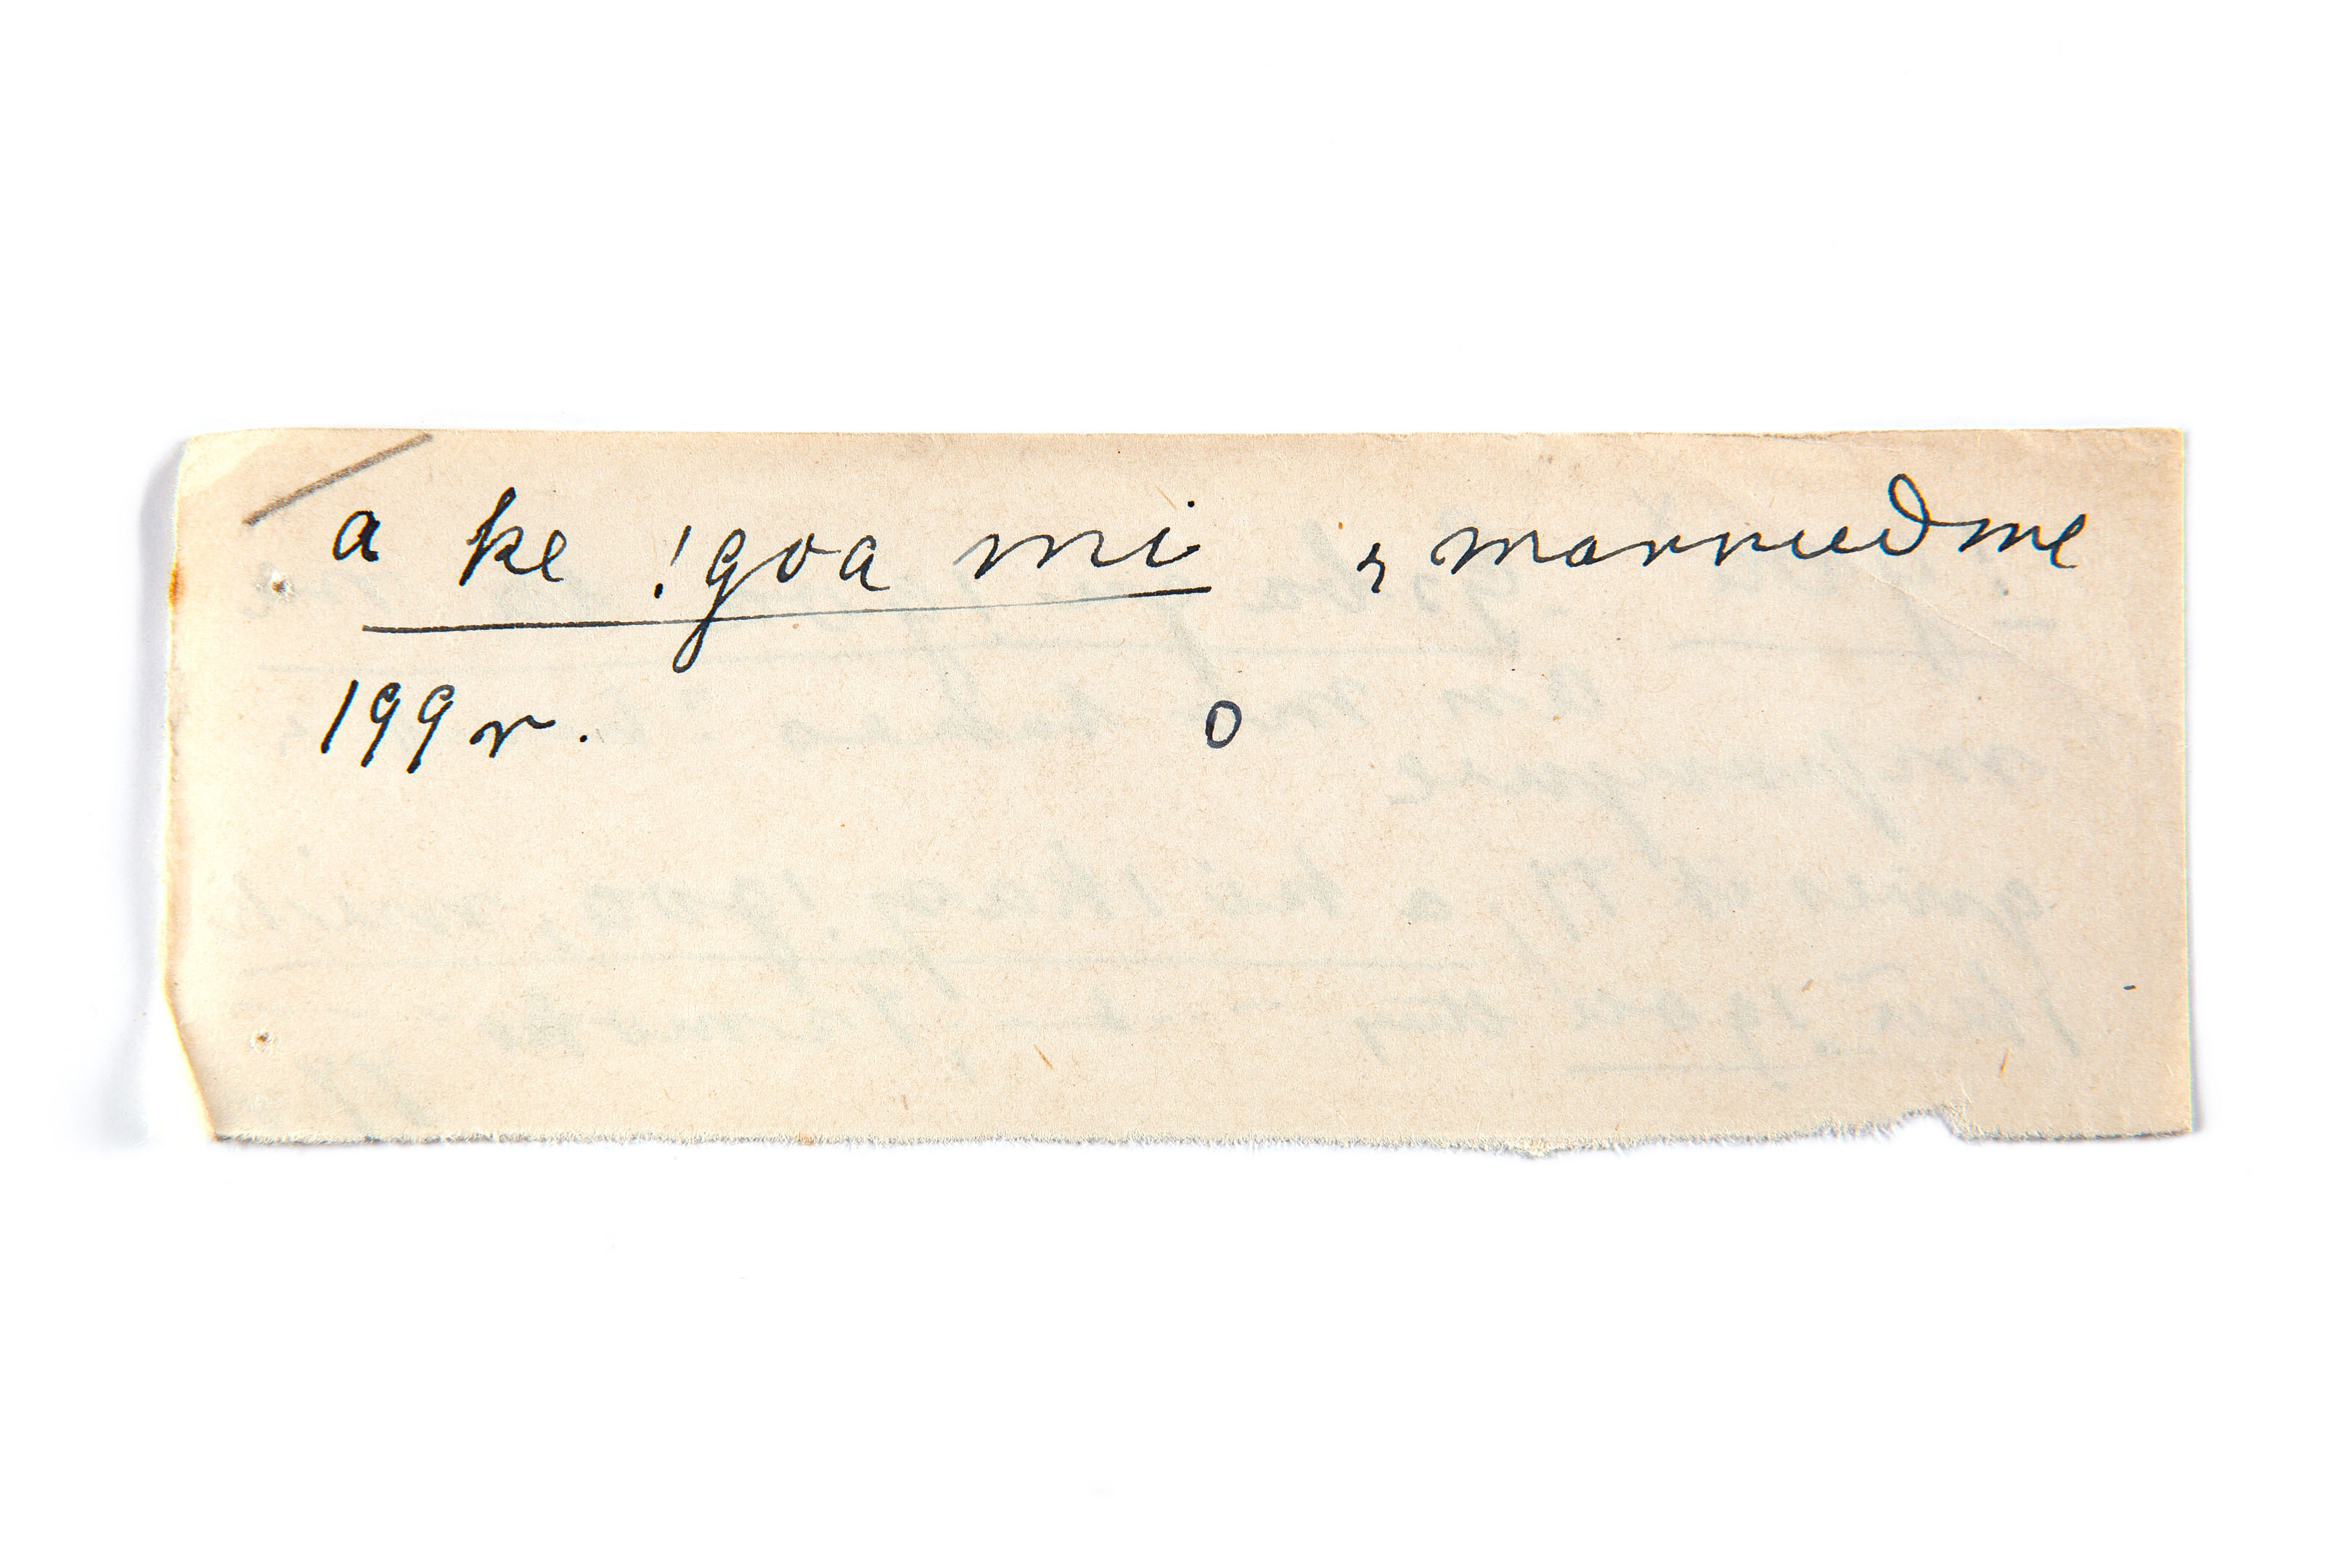 a ke !goa mi , married me
199 r. o